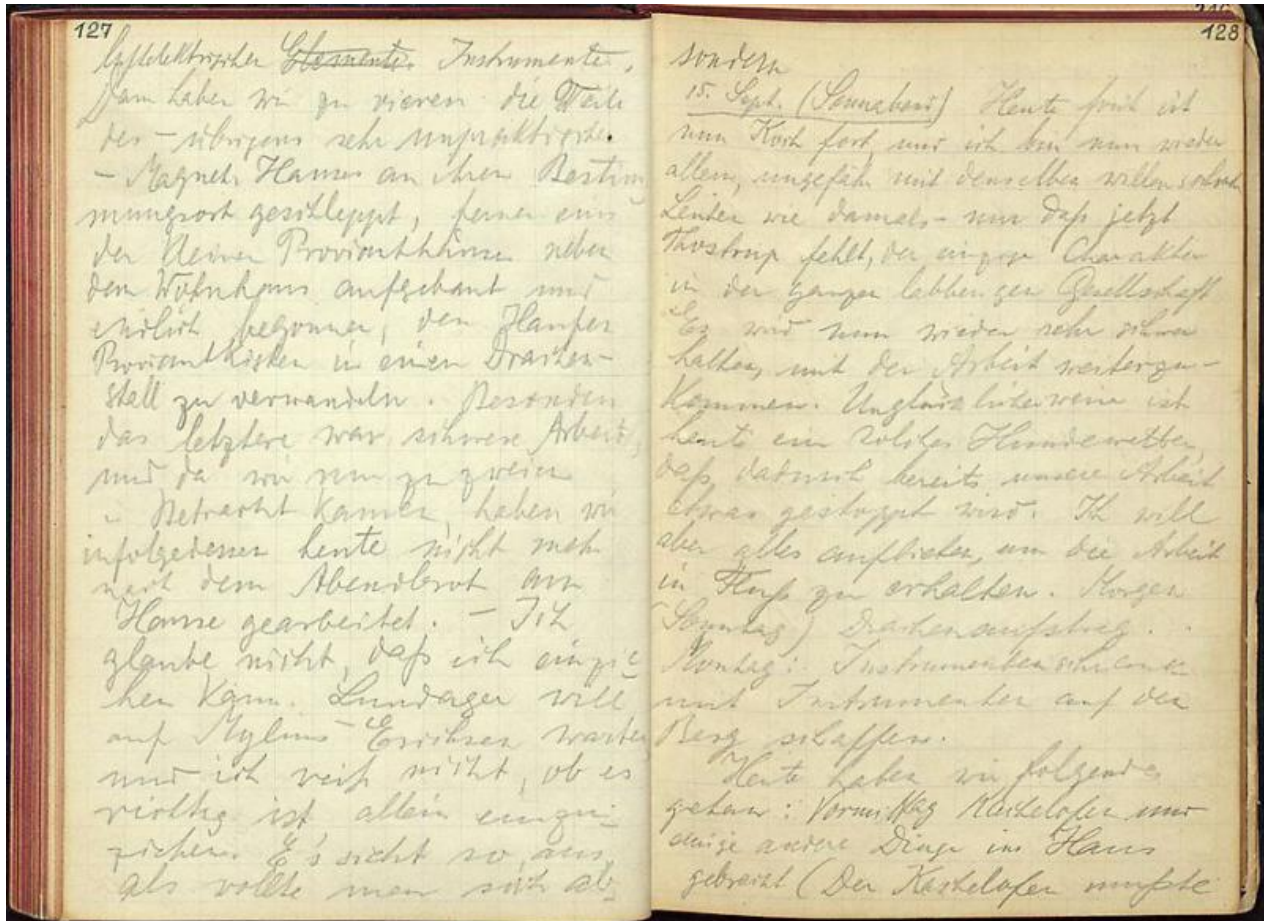 127
luftelektrischer Elemente Instrumente.
Dann haben wir zu vieren die Teile
des – übrigens sehr unpraktischen
– Magnet. Hauses an ihren Bestim
mungsort geschleppt, ferner eins
der kleinen Provianthäuser neben
dem Wohnhaus aufgebaut und
endlich begonnen, den Haufen
Proviantkisten in einen Drachen-
stall zu verwandeln. Besonders
das letztere war schwere Arbeit,
und da wir nun zu zweien
in Betracht kamen, haben wir
infolgedessen heute nicht mehr
nach dem Abendbrot am
Hause gearbeitet. – Ich
glaube nicht, daß ich einzie
hen kann. Lundager will
auf Mylius-Erichsen warten
und ich weiß nicht, ob es
richtig ist, allein einzu-
ziehen. Es sieht so aus,
als wollte man sich ab
128
sondern
15. Sept. (Sonnabend) Heute früh ist
nun Koch fort, und ich bin nun wieder
allein, ungefähr mit denselben
Leuten wie damals – nur daß jetzt
Thostrup fehlt, der einzige Charakter
in der ganzen Gesellschaft
Es wird nun wieder sehr schwer
halten, mit der Arbeit weiterzu-
kommen. Unglücklicherweise ist
heute ein solches Hundewetter,
daß dadurch bereits unsere Arbeit
etwas gestoppt wird. Ich will
aber alles aufbieten, um die Arbeit
in Fluß zu erhalten. Morgen
(Sonntag) Drachenaufstieg.
Montag: mit Instrumenten auf den
Berg schaffen.
Heute haben wir folgendes
getan: Vormittag Kachelofen und
einige andere Dinge ins Haus
gebracht (Der Kachelofen mußte